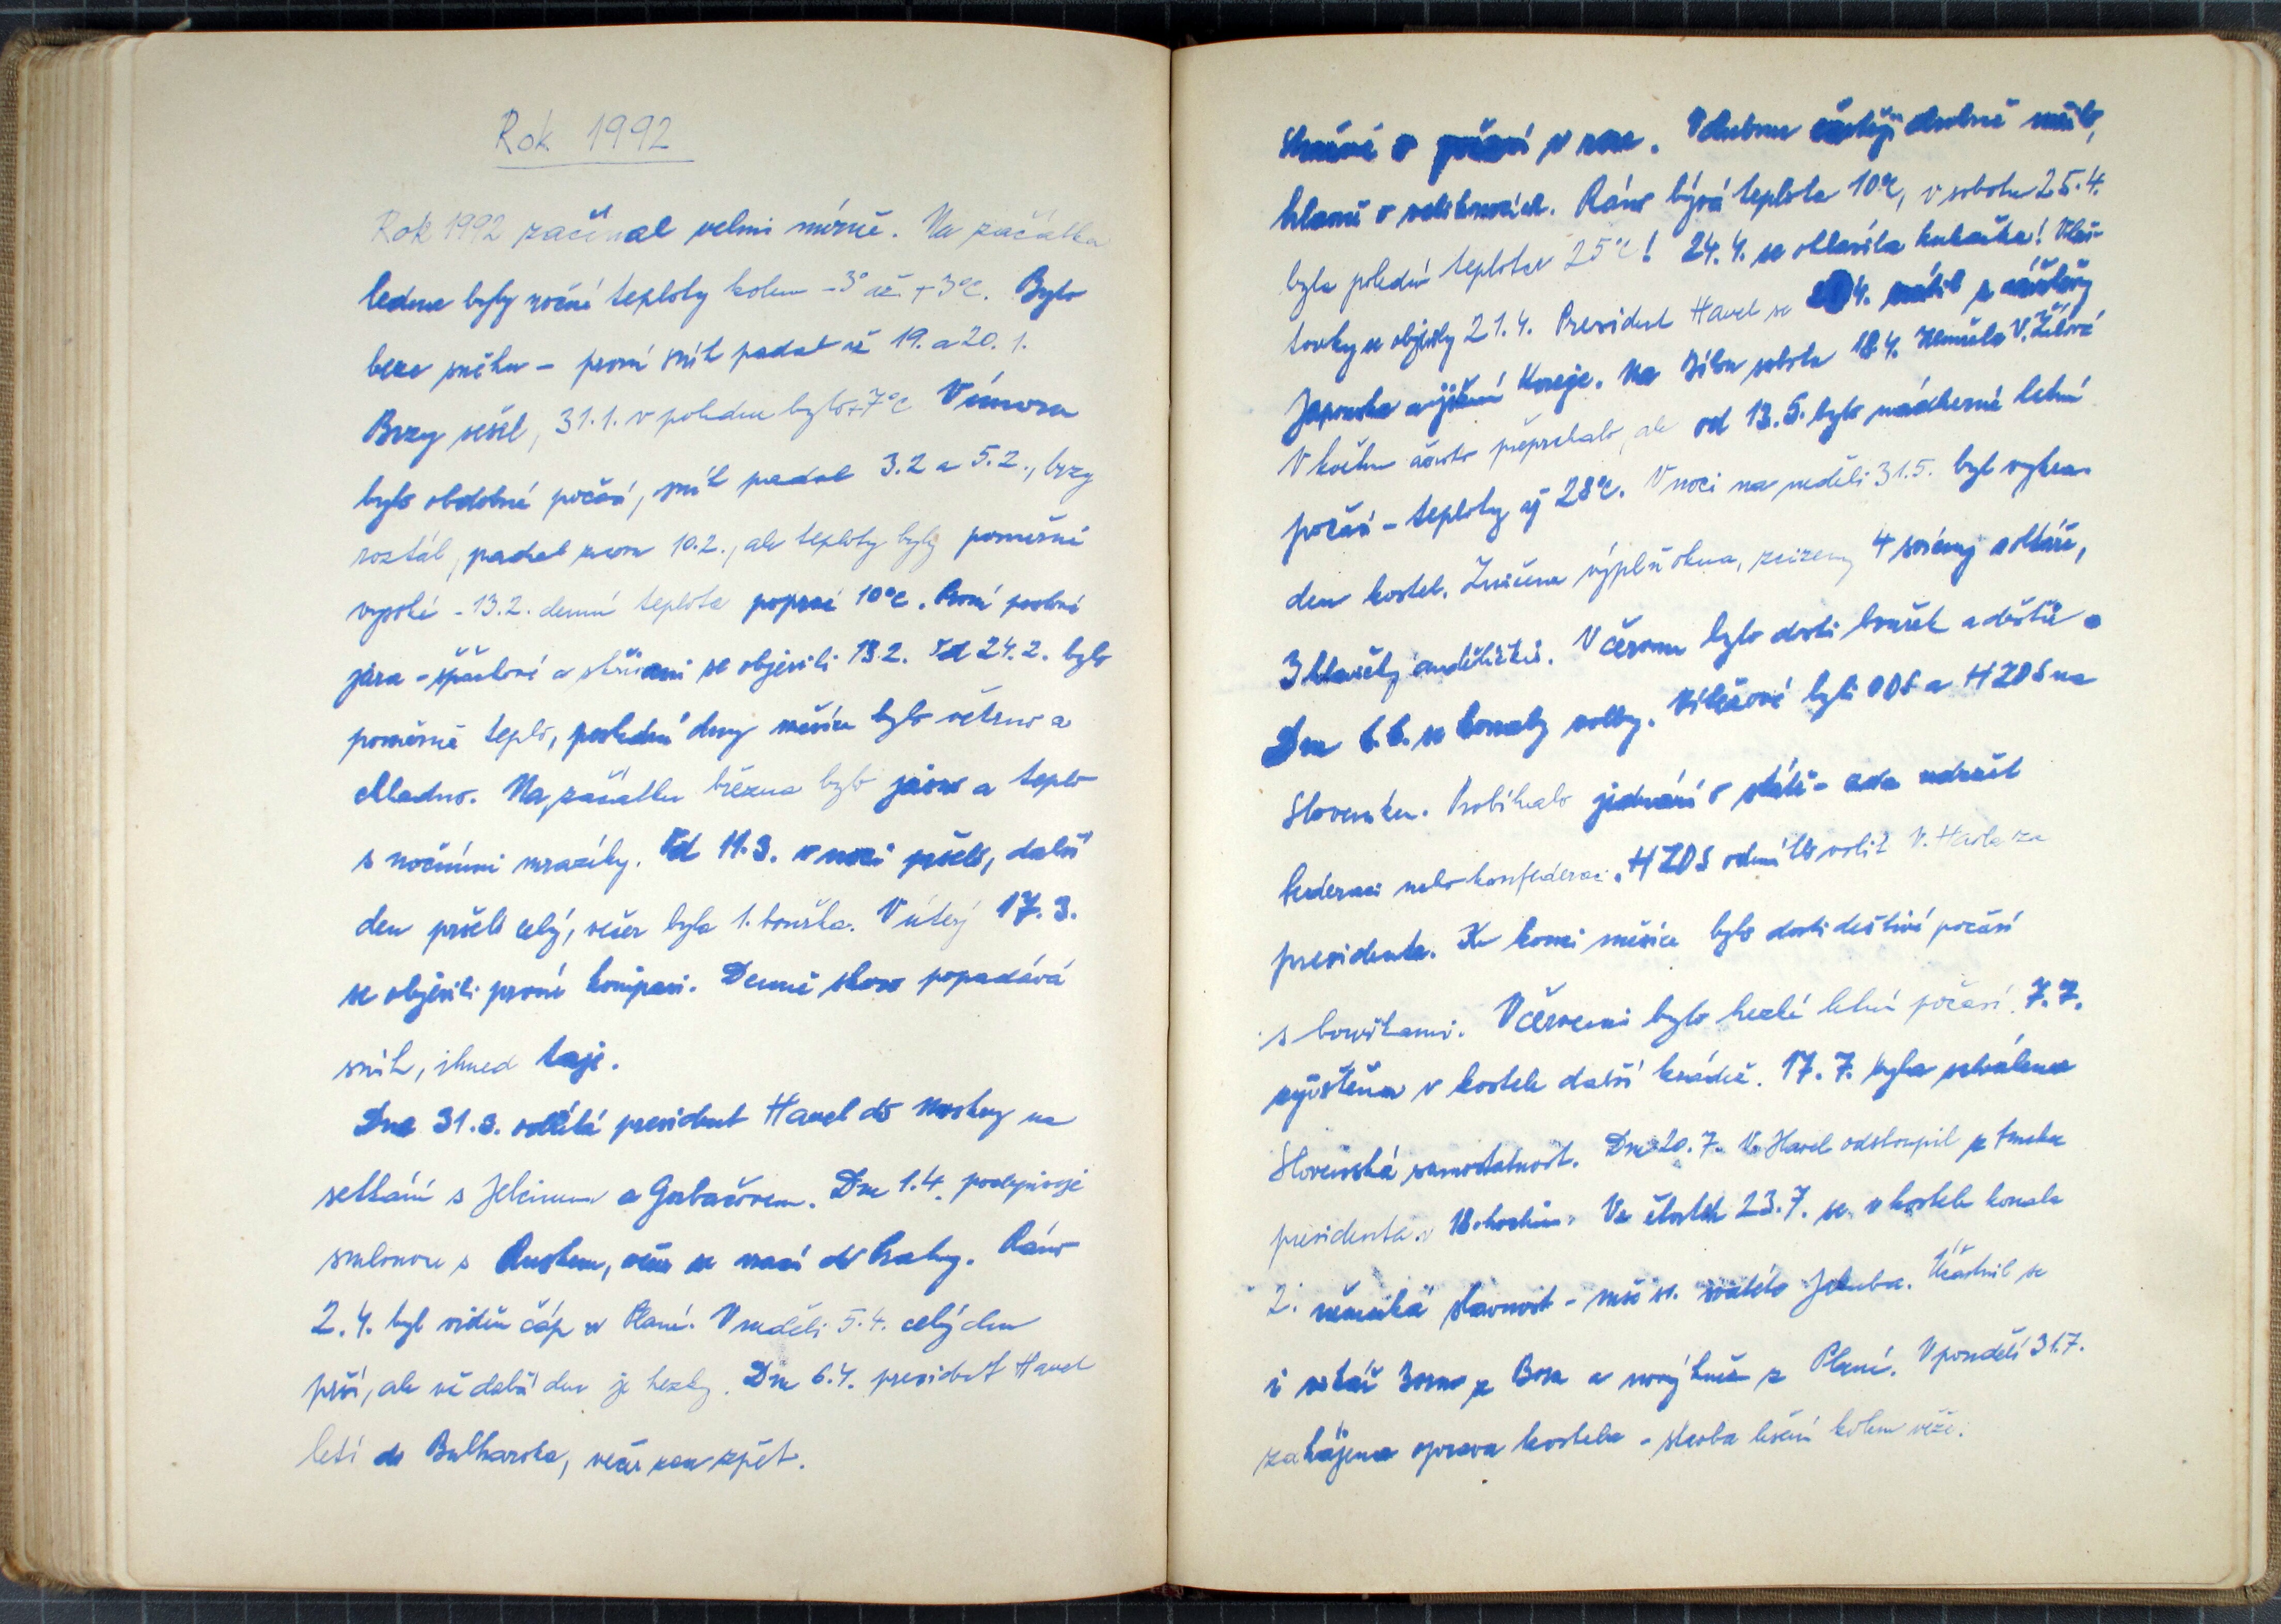 Rok 1992
Rok 1992 začínal velmi mírně. Na začátku
ledna byly noční teploty kolem -3° až +3°C. Bylo
beze sněhu - první sníh padal až 19. a 20. 1.
Brzy sešel, 31.1. v poledne bylo +7°C V únoru
bylo obdobné počasí, sníh padal 3.2 a 5.2., brzy
roztál, padal znovu 10.2., ale teploty byly poměrně
vysoké - 13.2. denní teplota poprvé 10°C. První poslové
jara - špačkové a skřivani se objevili 13.2. Od 24.2. bylo
poměrně teplo, poslední dny měsíce bylo větrno a
chladno. Na začátku března bylo jasno a teplo
s nočními mrazíky. Od 11.3. v noci pršelo, další
den pršelo celý, večer byla 1. bouřka. V úterý 17.3.
se objevili první konipasi. Denně skoro popadává
sníh, ihned taje.
Dne 31.3. odlétá president Havel do Moskvy na
setkání s Jelcinem a Gorbačovem. Dne 1.4. podepisuje
smlouvu s Ruskem, večer se vrací do Prahy. Ráno
2.4. byl viděn čáp v Plané. V neděli 5.4. celý den
prší, ale už další den je hezky. Dne 6.4. president Havel
letí do Bulharska, večer zpět.
o počasí v roce. V dubnu častěji drobně
hlavně o velikonocích. Ráno bývá teplota 10°C, v sobotu 25.4.
byla polední teplota 25°C! 24.4. se ohlásila kukačka! Vlaš-
tovky se objevily 21.4. President Havel se 4. vrátil z návštěvy
Japonska a jižní Koreje. Na Bílou sobotu 18.4. zemřela V.
V květnu často přeprchalo, ale od 13.5. bylo nádherné letní
počasí - teploty až 28°C. V noci na neděli 31.5. byl vykra-
den kostel. Zničena výplň okna, zcizeny 4 z oltáře,
3 hlavičky andělíčků. V červnu bylo dosti bouřek a deště.
Dne 6.6. se konaly volby. Vítězové byli ODS a HZDS na
Slovensku. Probíhalo jednání o státě - zda udržet
federaci nebo konfederaci. HZDS odmítlo volit V. Havla za
presidenta. Ke konci měsíce bylo dosti deštivé počasí
s bouřkami. V červenci bylo hezké letní počasí. 7.7.
zjištěna v kostele další krádež. 17.7. byla schválena
Slovenská samostatnost. Dne 20.7. V. Havel odstoupil z funkce
presidenta v 18. hodin. Ve čtvrtek 23.7. se v kostele konala
2. německá slavnost - mše sv. svatého Jakuba. Účastnil se
i z Boru a nový kněz z Plané. V pondělí 31.7.
zahájena oprava kostela - stavba lešení kolem věže.